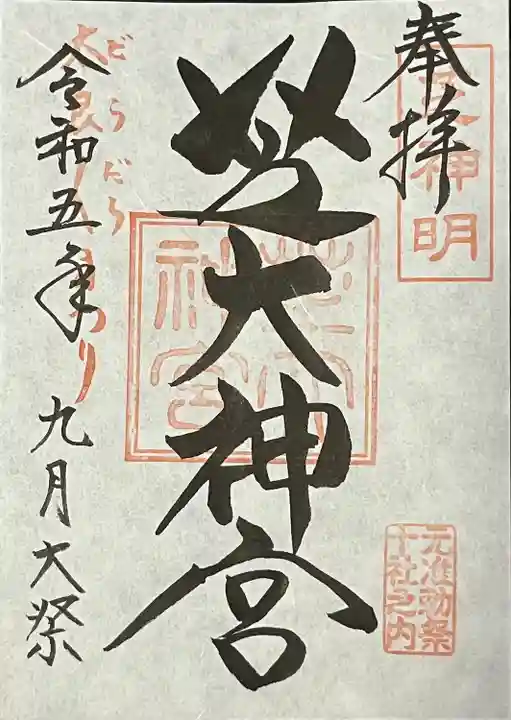 奉拝
芝神明
芝大神宮
芝大神宮
元准勅祭
十社之内
だらだら
まつり
令和五年 九月大祭